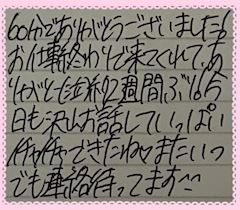 60分でありがとうございました!
お仕事終わりで来てくれて、あ
りがとう 約2週間ぶり 今
日も沢山お話していっぱい
イチャイチャできたね♡またいつ
でも連絡待ってます^^